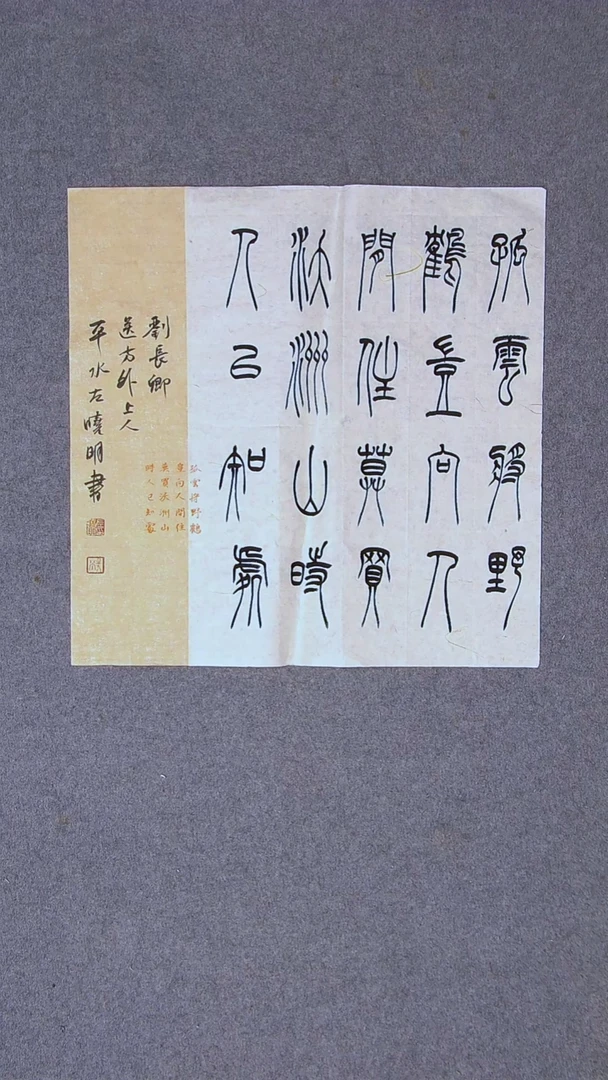 孤雲將野
鶴豈向人
間住莫買
沃洲山時
人已知處
孤雲將野鶴
豈向人間住
莫買沃洲山
時人已知處
劉長卿
送方外上人
平水左曉明書